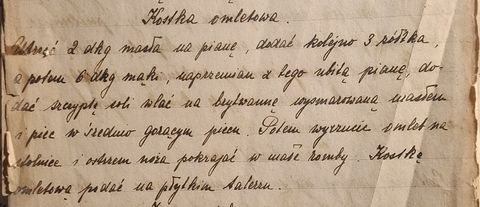 Kostka omletowa.
Utrzeć 2 dkg masła na pianę, dodać kolejno 3 żółtka,
a potem 6 dkg mąki, naprzemian z lego ubitą pianę, do-
dać szczyptę soli wlać na brytwannę wysmarowaną masłem
i piec w średnio gorącym piecu. Potem wyrzucić omlet na
stolnicę i ostrzem noża pokrajać w małe romby. Kostkę
omletową podać na płytkim talerzu.